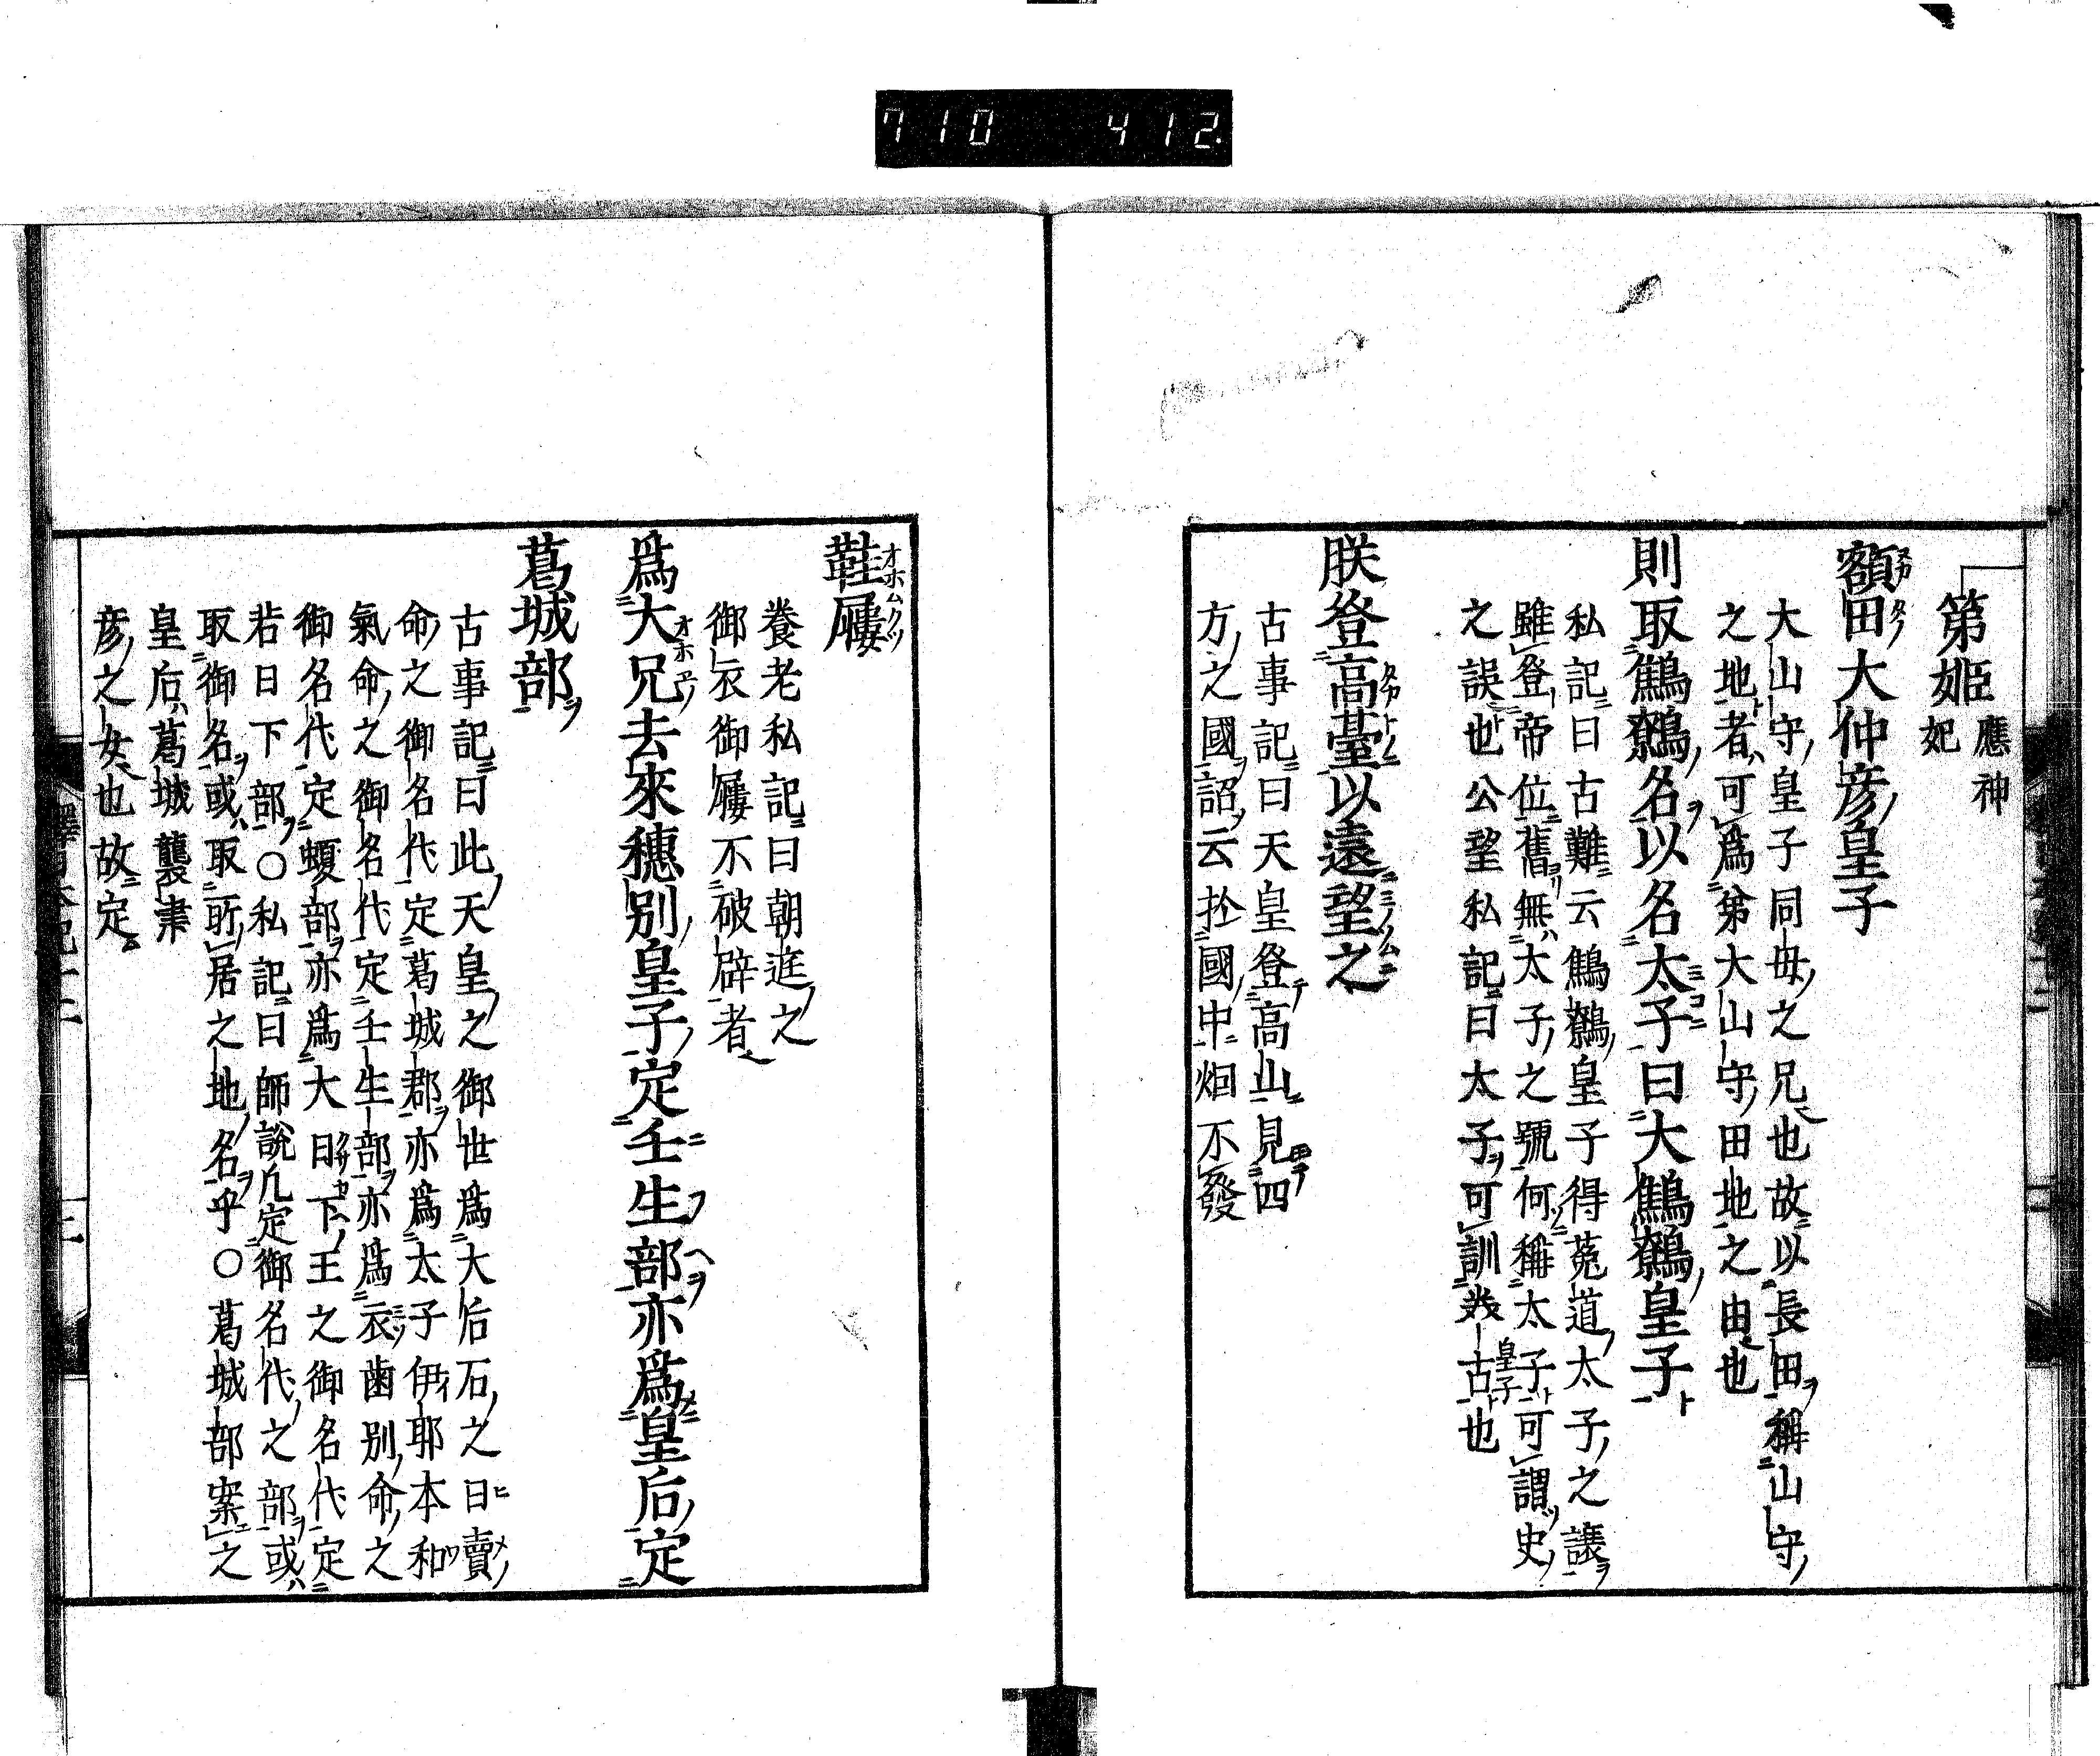 710 412
第姫 應神妃
額田大仲彦皇子
大山守皇子同母之兄也故以長田稱山守
之地者可爲第大山守田地之由也
則取鷦鷯名以名太子曰大鷦鷯皇子
私記曰古難云鷦鷯皇子得菟道太子之譲
雖登帝位舊無太子之號何稱太子可謂史
皇子
之誤也公望私記曰太子可訓美古也
朕登高臺以遠望之
古事記曰天皇登高山見四
方之國詔云於國中烟不發
鞋屨
養老私記曰朝迋之
御衣御屨不破辟者
爲大兄去來穗別皇子定壬生部亦爲皇后定
葛城部
古事記曰此天皇之御世爲大后石之日賣
命之御名代定葛城郡亦爲太子伊耶本和
氣命之御名代定壬生部亦爲衣歯別命之
御名代定蝮部亦爲大日下王之御名代定
若日下部○私記曰師說凡定御名代之部或
取御名或取所居之地名乎○葛城部案之
皇后葛城襲津
彦之女也故定